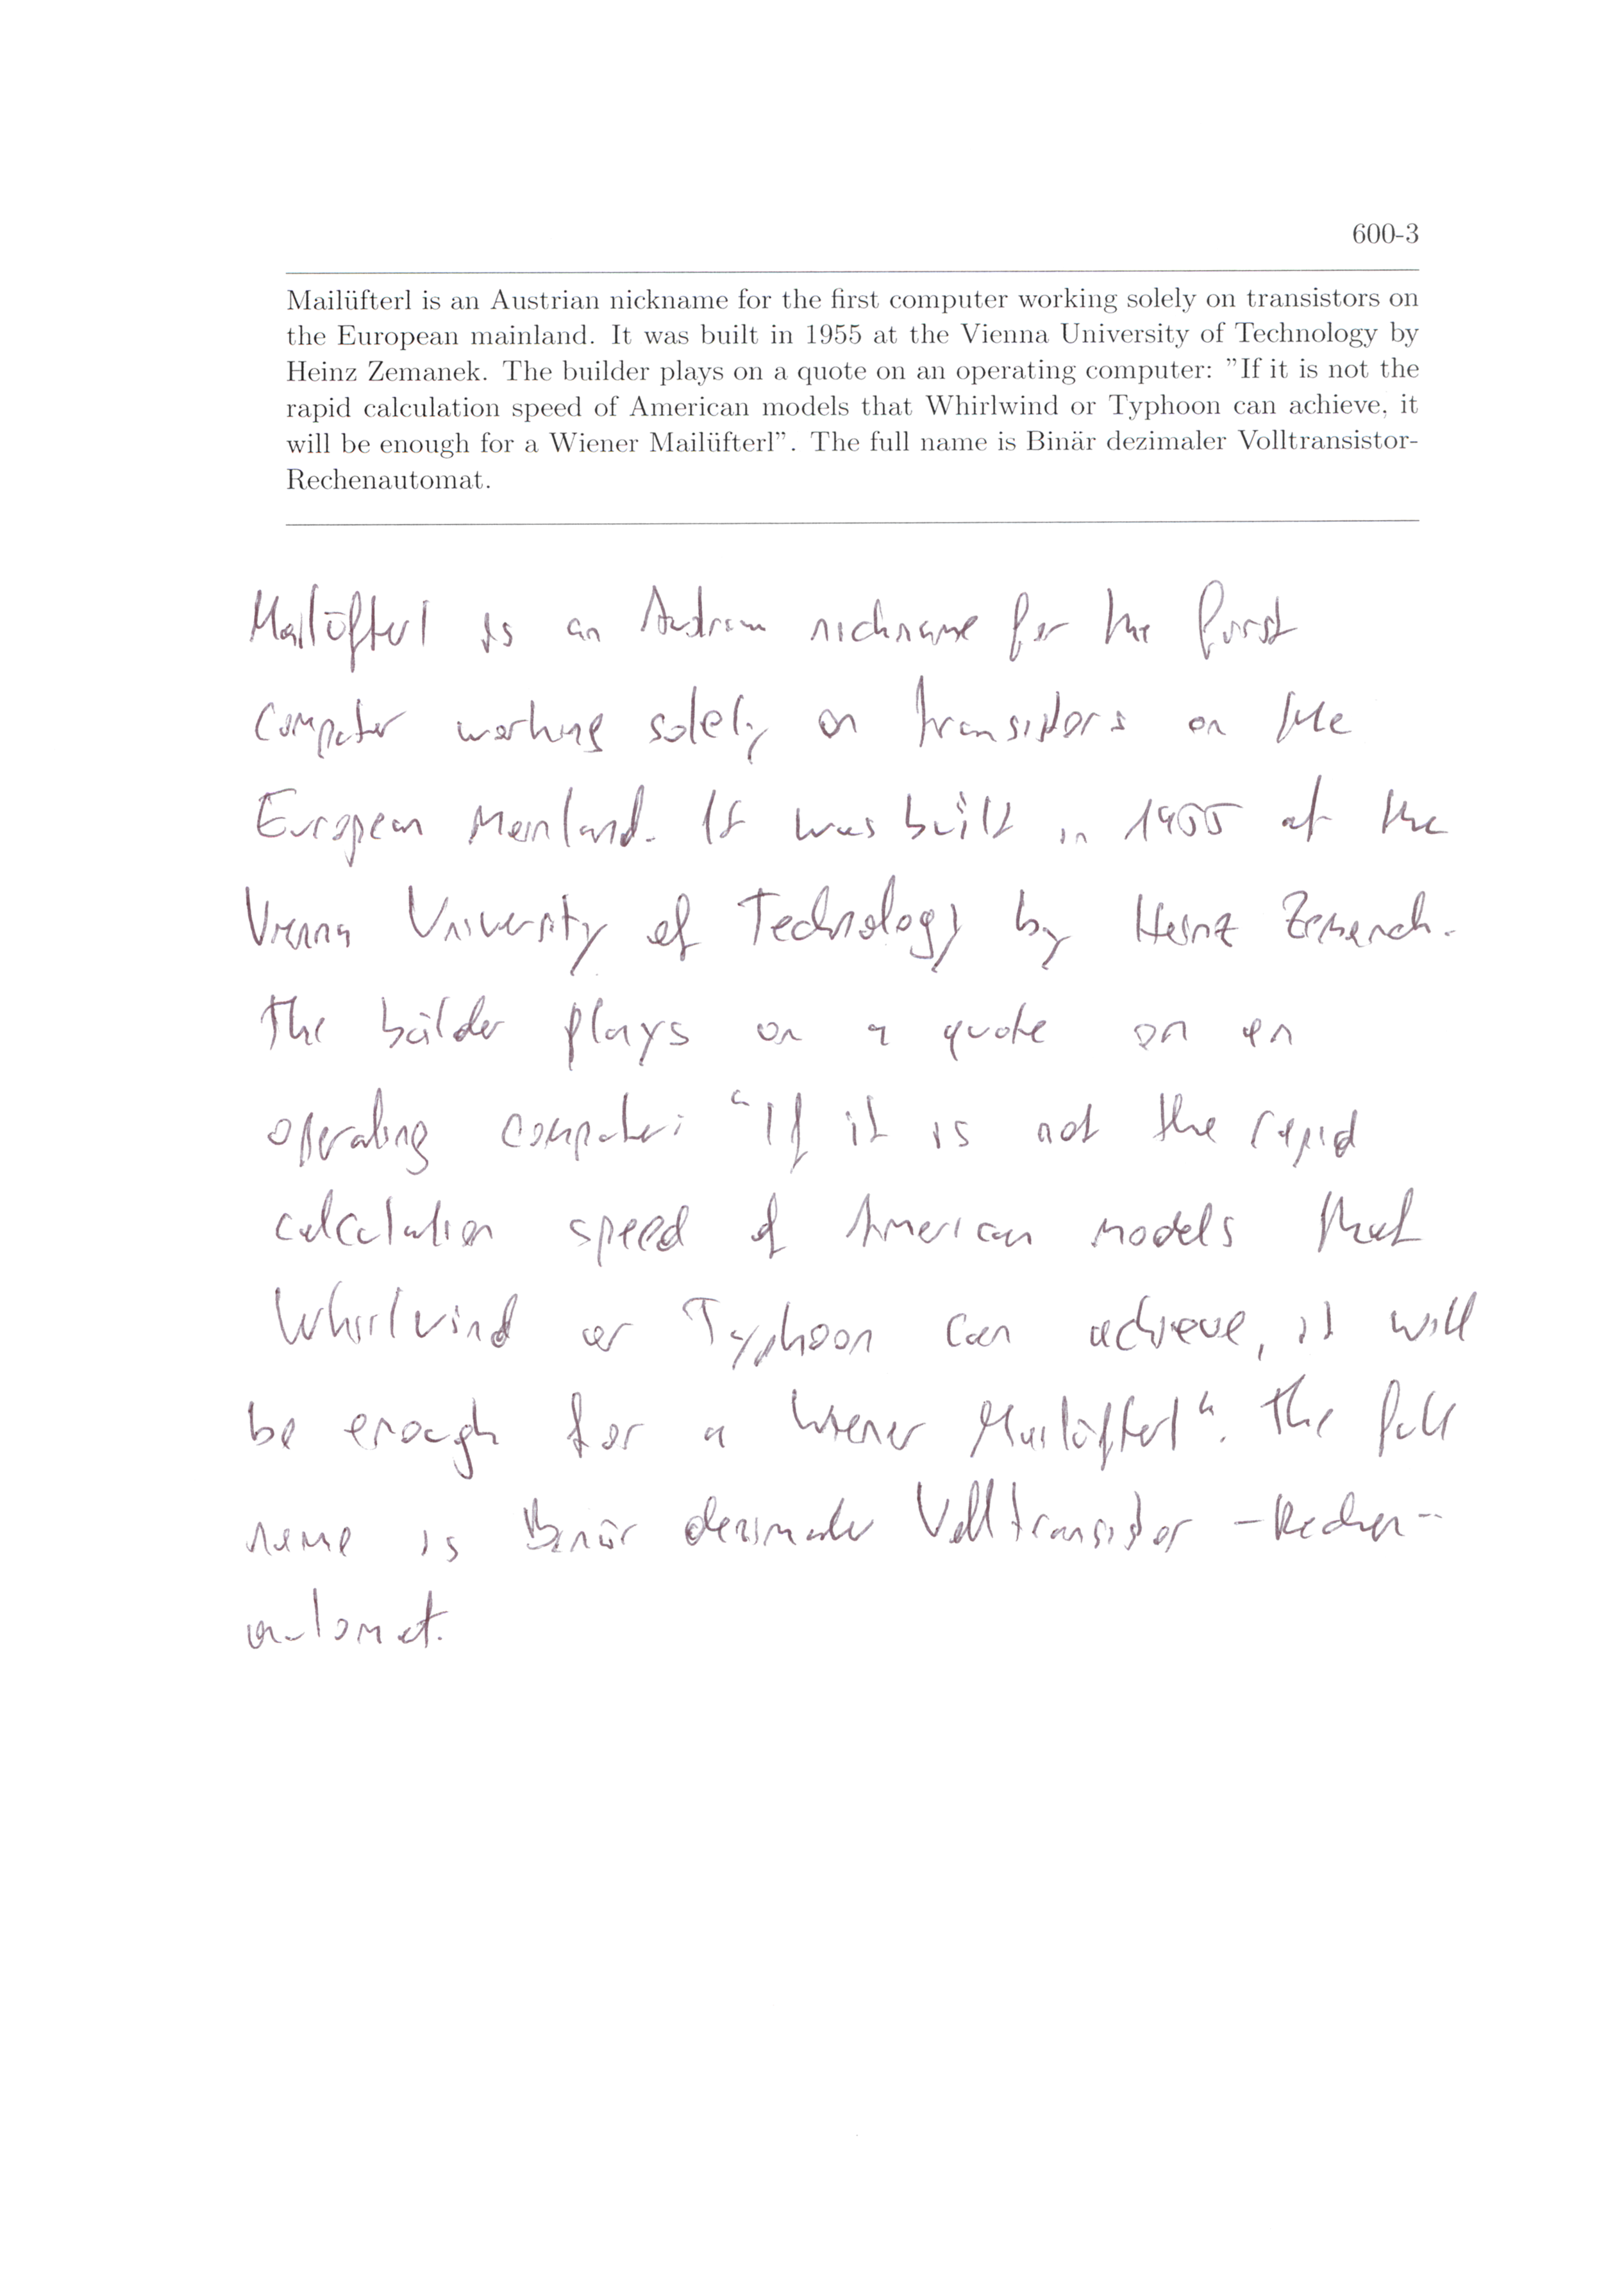 600-3
Mailüfterl is an Austrian nickname for the first computer working solely on transistors on
the European mainland. It was built in 1955 at the Vienna University of Technology by
Heinz Zemanek. The builder plays on a quote on an operating computer: "If it is not the
rapid calculation speed of American models that Whirlwind or Typhoon can achieve, it
will be enough for a Wiener Mailüfterl". The full name is Binär dezimaler Volltransistor-
Rechenautomat.
Mailüfterl is an Austrian nickname for the first
computer working solely on transistors on the
European Mainland. It was built in 1955 at the
Vienna University of Technology by Heinz Zemanek.
The builder plays on a quote on an
operating computer: "If it is not the rapid
calculation speed of American models that
Whirlwind or Typhoon can achieve, it will
be enough for a Wiener Mailüfterl". The full
name is Binär dezimaler Volltransistor -Rechen-
automat.